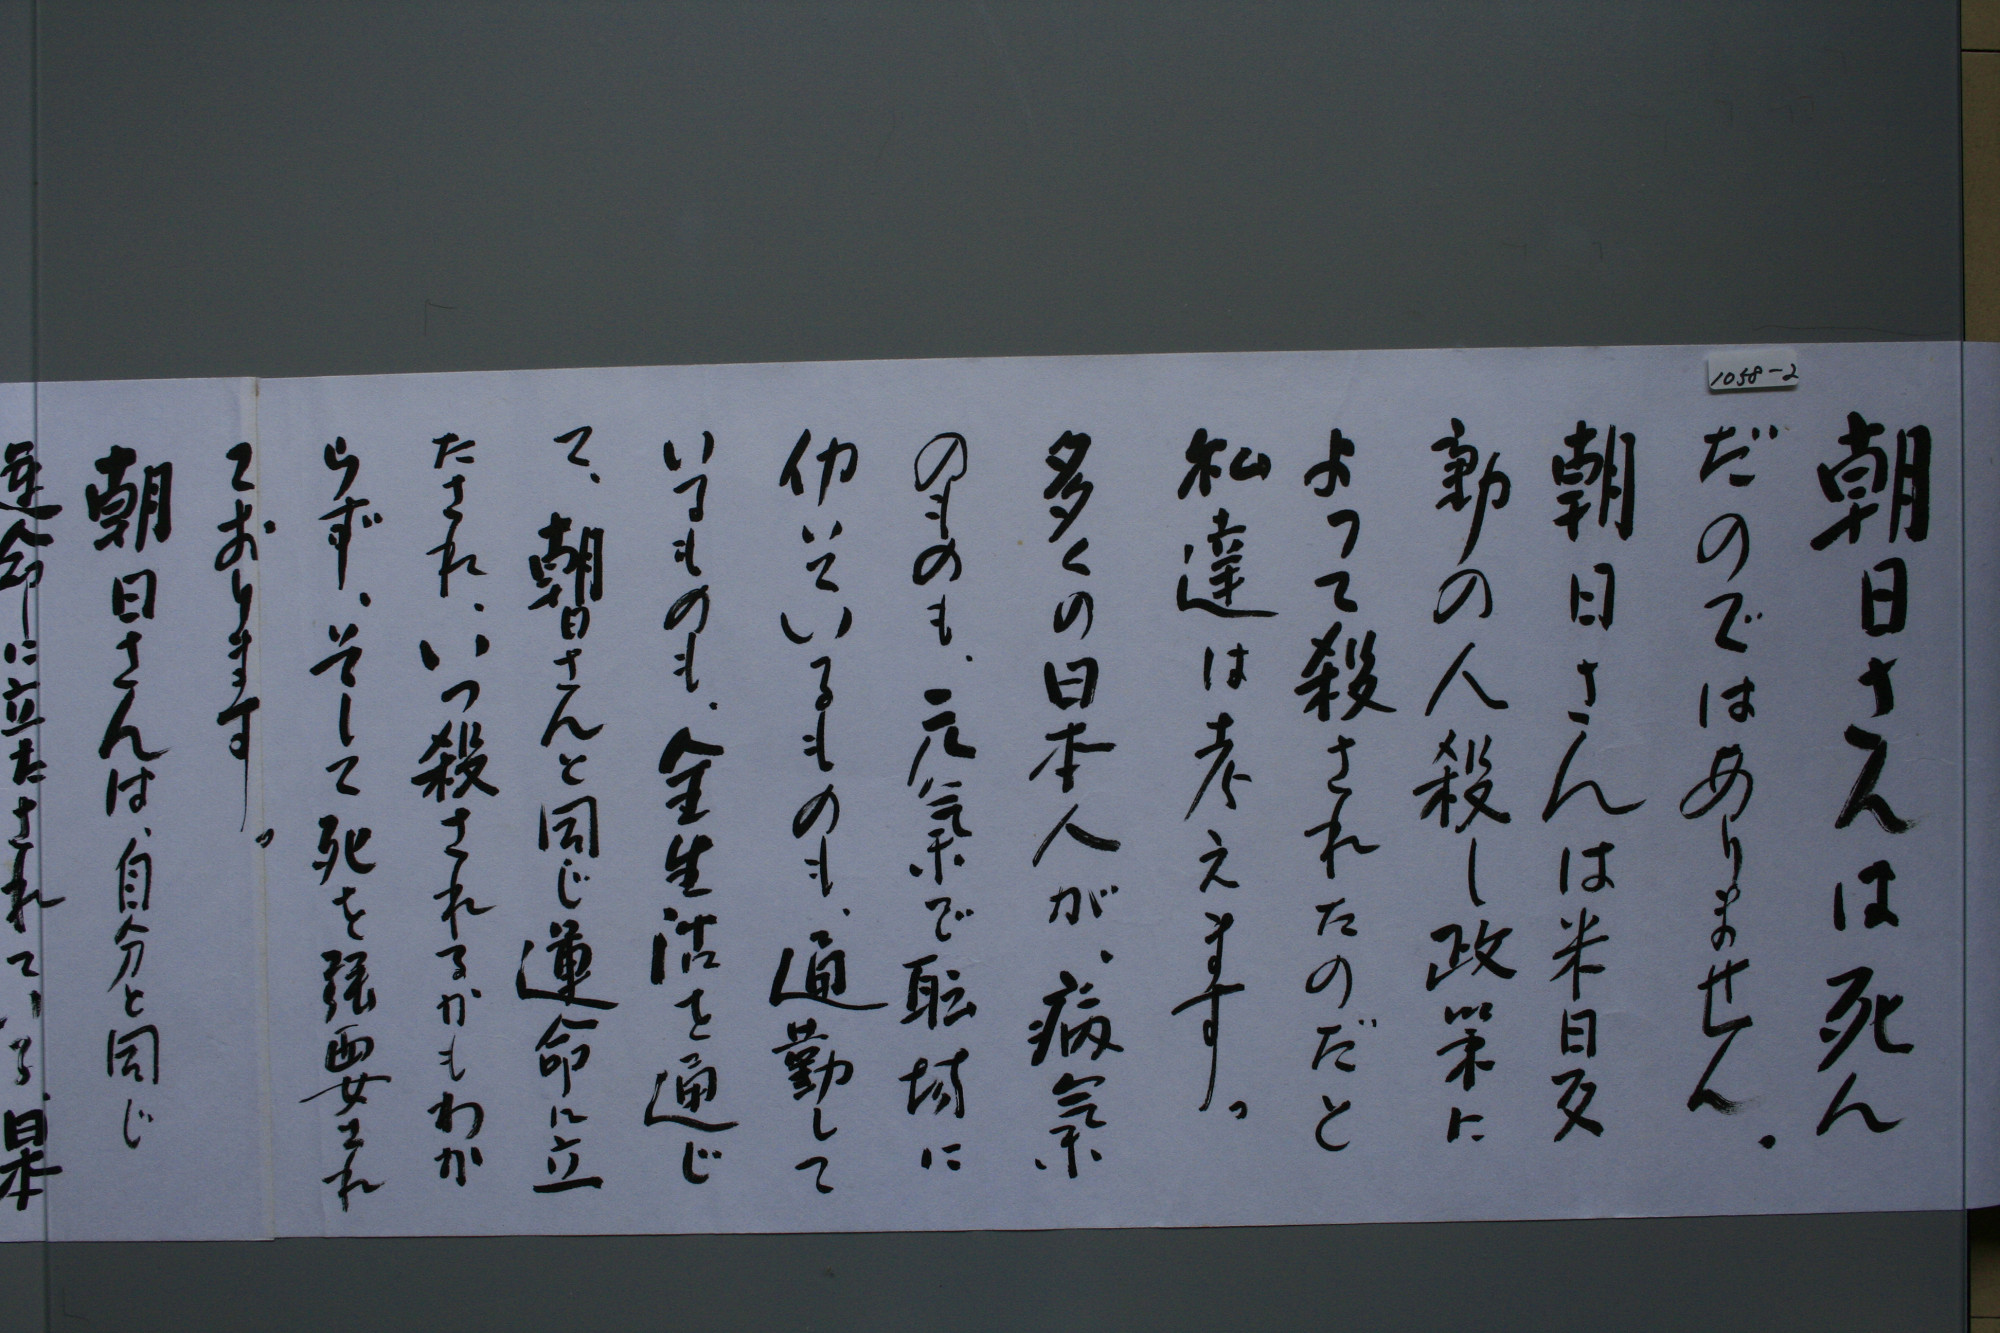 1058-2
朝日さんは死ん
だのではありません。
朝日さんは米日反
動の人殺し政策に
よって殺されたのだと
私達は考えます。
多くの日本人が、病気
のものも、元気で职場に
仂いているものも、通勤して
いるものも、全生活を通じ
て、朝日さんと同じ運命に立
たされ、いつ殺されるかもわか
らず、そして死を強要され
ております。
朝日さんは、自分と同じ
運命に立たされている、日本